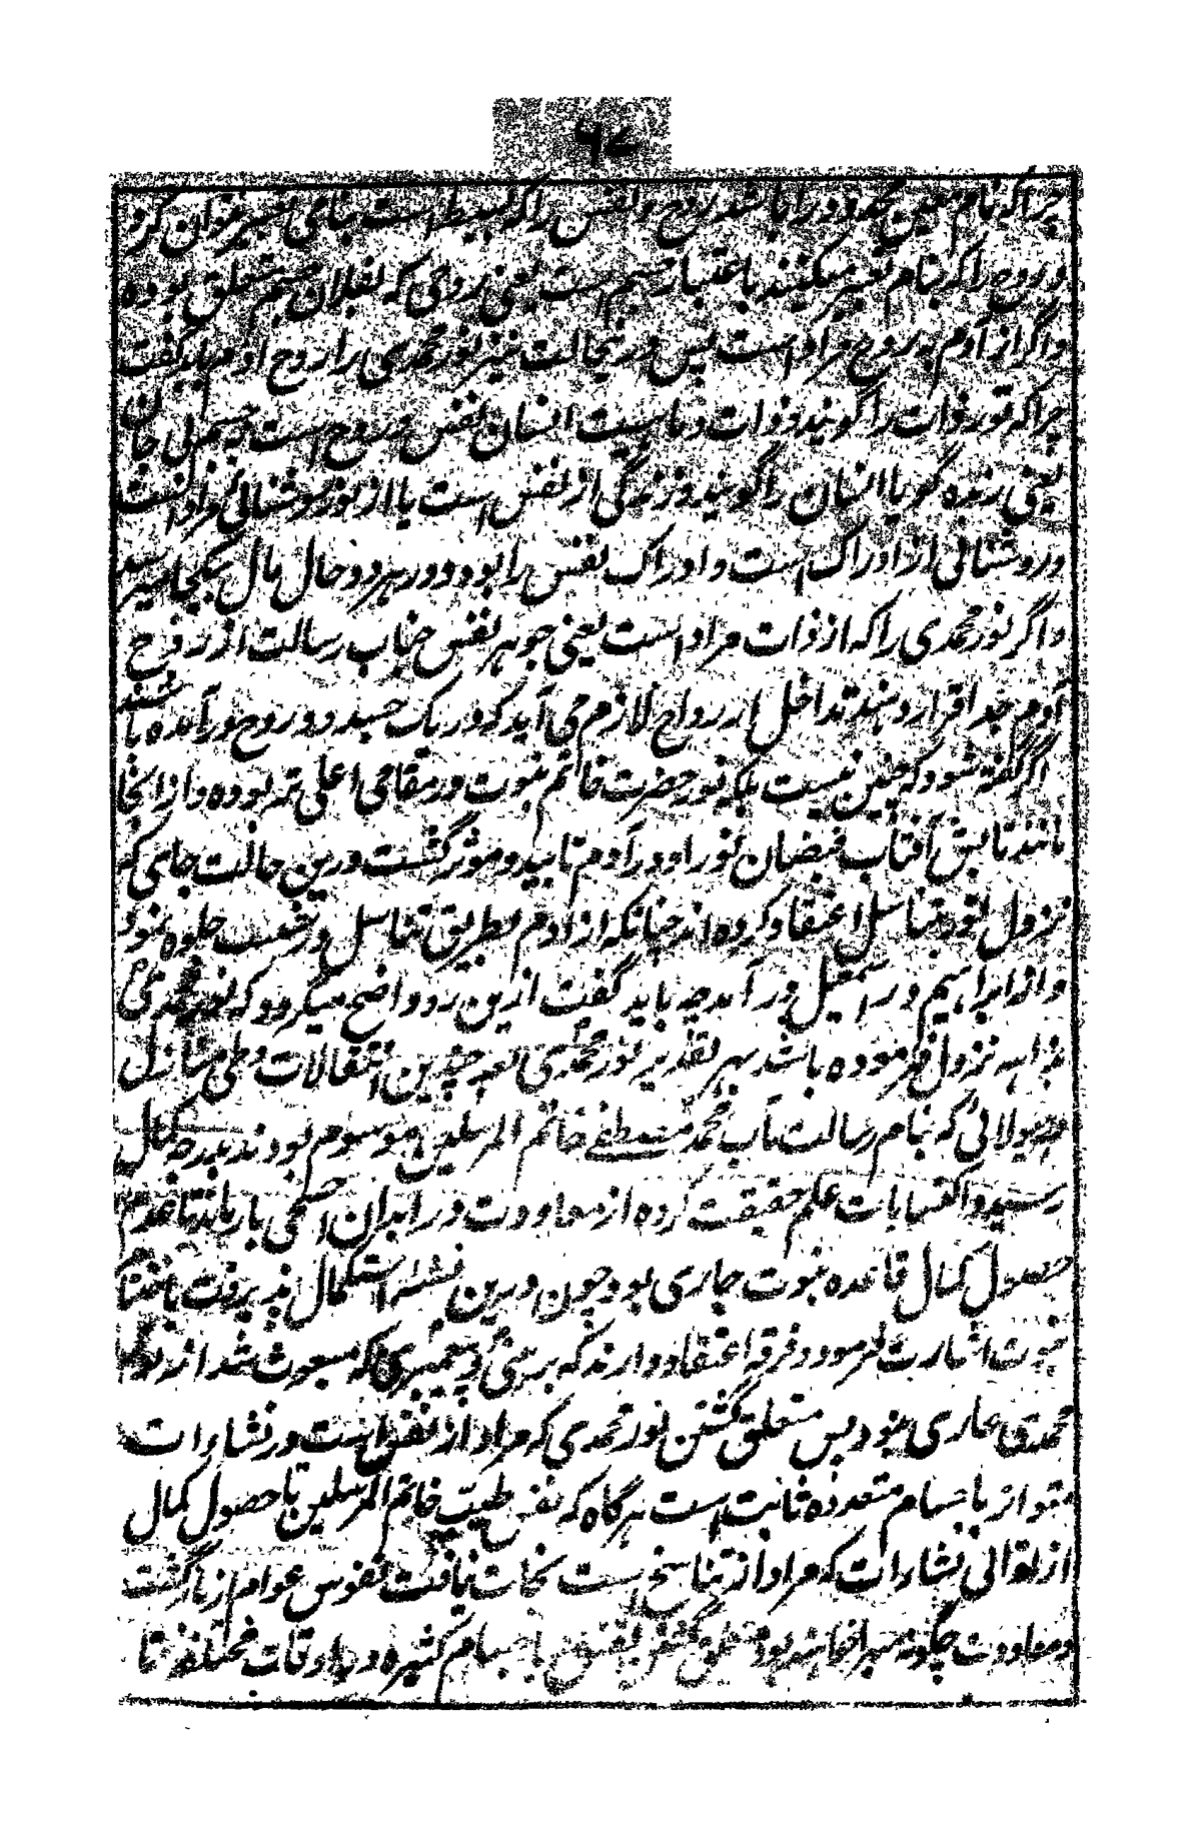 ۶۷
چراکه نام معین محدود را باشد روح و نفس را که بسیط است بنامی تعبیر نتوان کرد
و روح را که بنام تعبیر میکنند باعتبار جسم است یعنی روحی که بفلان جسم متعلق بوده
واگر از آدم به روح مراد است پس درینحالت نیز نور محمدی را روح او میباید گفت
چراکه نور ذات را گویند و ذات و ماهیت انسان نفس و روح است نه جسم بی جان
یعنی زنده گویا انسان را گویند و زندگی از نفس است یا از نور روشنائی مراد است
و روشنائی از ادراک است و ادراک نفس را بود و در هر دو حال مآل بیکجا میرسد
واگر نور محمدی را که از ذات مراد است یعنی جوهر نفس جناب رسالت از روح
آدم جدا قرار دهند تداخل ارواح لازم می آید که در یک جسد دو روح درآمده باشند
اگر گفته شود که چنین نیست بلکه نور حضرت خاتم نبوت در مقامی اعلی تر بوده و از انجا
مانند تابش آفتاب فیضان نور او در آدم تابید و موثر گشت درین حالت جای که
نزول نور بتناسل اعتقاد کرده اند چنانکه از آدم بطریق تناسل در شیث جلوه نمود
و از ابراهیم در اسمعیل در آمد چه باید گفت ازین رو واضح میگردد که نور محمدی
بذاته نزول فرموده باشد بهر تقدیر نور محمدی بعد چندین انتقالات و طی منازل
هیولائی که بنام رسالت مآب محمد مصطفے خاتم المرسلین موسوم بودند بدرجه کمال
رسید و اکتسابات علم حقیقت کرده از معاودت در ابدان جسمی باز ماند تا عدم
حصول کمال قاعده نبوت جاری بود چون درین نشاء استکمال پذیرفت باختتام
نبوت اشارت فرمود و فرقه اعتقاد دارند که هر نبی و پیغمبری که مبعوث شد از نور
محمدی عاری نبود پس متعلق گشتن نور محمدی که مراد از نفس است در نشاءات
متواتر باجسام متعدده ثابت است هرگاه که نفس طیب خاتم المرسلین تا حصول کمال
از توالی نشاءات که مراد از تناسخ است نجات نیافت نفوس عوام از بازگشت
و معاودت چگونه مبرا خواهند بود متعلق گشتن نفس باجسام کثیره در اوقات مختلفه تا